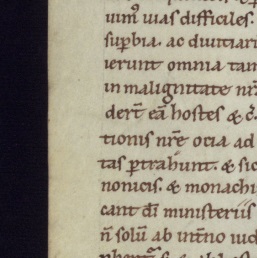 uim⁹ uias difficiles.
suꝑbia. ac diuitiar
ierunt omnia tam
in malignitate nr̄
der̄t eā hostes &
tionis nr̄e ocia ad
tas ꝑtrahunt. & sic
nonicis. & monachi
cant dī ministeriis
n̄ solū ab int̄no iud